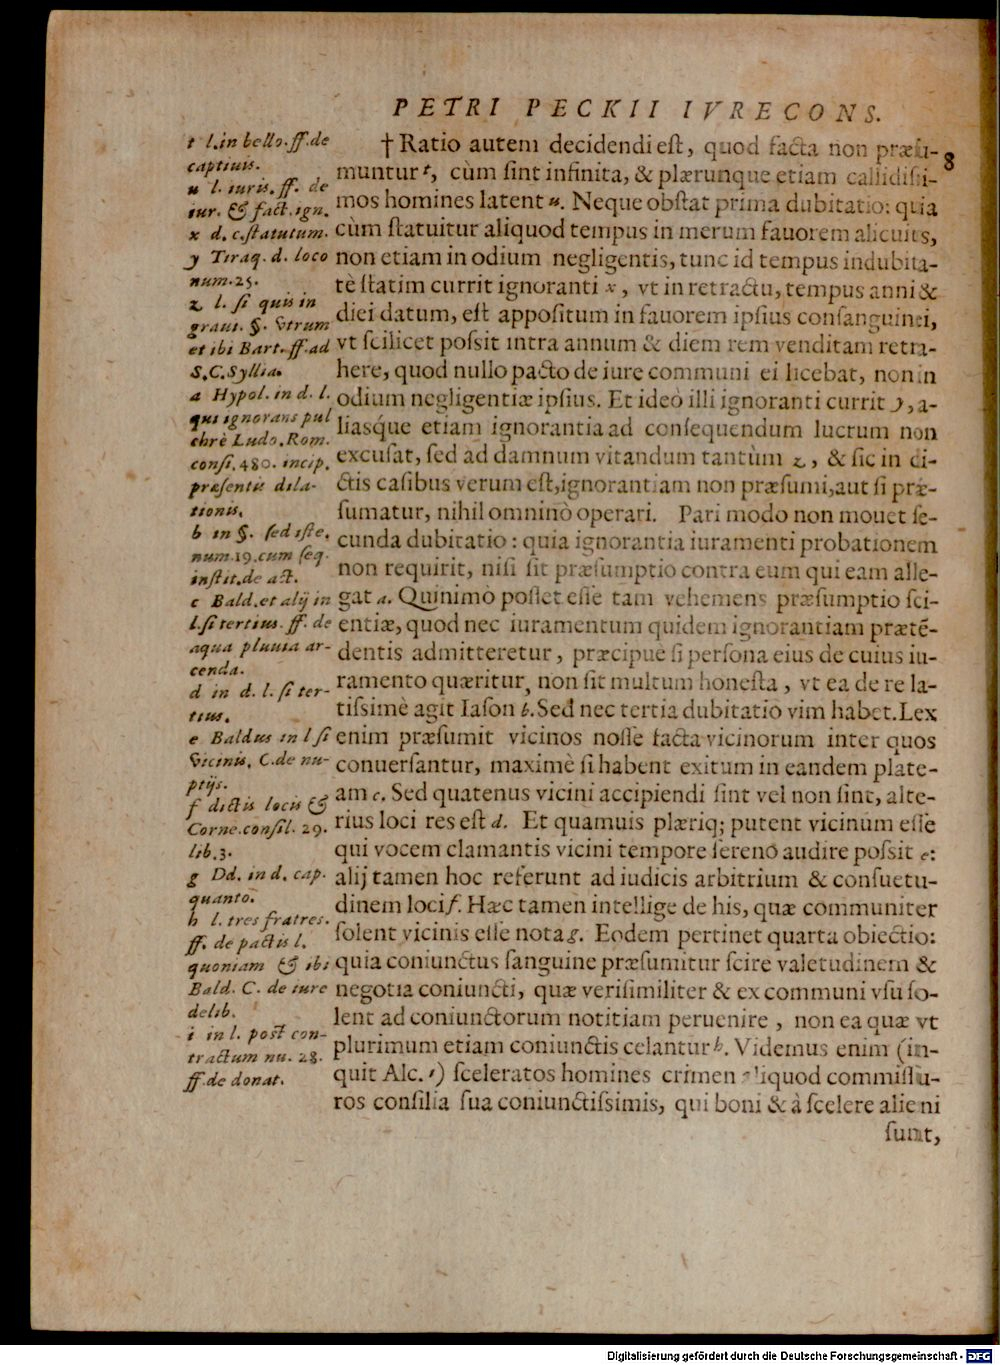 PETRI PECKII IVRECONS.
† Ratio autem decidendi eſt, quod facta non præſu-
8
muntur t, cùm ſint infinita, & plærunque etiam callidiſsi-
mos homines latent u. Neque obſtat prima dubitatio: quia
cùm ſtatuitur aliquod tempus in merum fauorem alicuius,
non etiam in odium negligentis, tunc id tempus indubita-
tè ſtatim currit ignoranti x, vt in retractu, tempus anni &
diei datum, eſt appoſitum in fauorem ipſius conſanguinei,
vt ſcilicet poſsit intra annum & diem rem venditam retra-
here, quod nullo pacto de iure communi ei licebat, non in
odium negligentiæ ipſius. Et ideò illi ignoranti currit y, a-
liasq́ue etiam ignorantia ad conſequendum lucrum non
excuſat, ſed ad damnum vitandum tantùm z, & ſic in di-
ctis caſibus verum eſt, ignorantiam non præſumi, aut ſi præ-
ſumatur, nihil omninò operari. Pari modo non mouet ſe-
cunda dubitatio: quia ignorantia iuramenti probationem
non requirit, niſi ſit præſumptio contra eum qui eam alle-
gat a. Quinimò poſſet eſſe tam vehemens præſumptio ſci-
entiæ, quod nec iuramentum quidem ignorantiam prætē-
dentis admitteretur, præcipuè ſi perſona eius de cuius iu-
ramento quæritur, non ſit multum honeſta, vt ea de re la-
tiſsimè agit Iaſon b. Sed nec tertia dubitatio vim habet. Lex
enim præſumit vicinos noſſe facta vicinorum inter quos
conuerſantur, maximè ſi habent exitum in eandem plate-
am c. Sed quatenus vicini accipiendi ſint vel non ſint, alte-
rius loci res eſt d. Et quamuis plæriq; putent vicinum eſſe
qui vocem clamantis vicini tempore ſereno audire poſsit e:
alij tamen hoc referunt ad iudicis arbitrium & conſuetu-
dinem loci f. Hæc tamen intellige de his, quæ communiter
ſolent vicinis eſſe nota g. Eodem pertinet quarta obiectio:
quia coniunctus ſanguine præſumitur ſcire valetudinem &
negotia coniuncti, quæ veriſimiliter & ex communi vſu ſo-
lent ad coniunctorum notitiam peruenire, non ea quæ vt
plurimum etiam coniunctis celantur h. Videmus enim (in-
quit Alc. i) ſceleratos homines crimen aliquod commiſſu-
ros conſilia ſua coniunctiſsimis, qui boni & à ſcelere alieni
ſunt,
t l. in bello. ff. de
captiuis.
u l. iuris. ff. de
iur. & fact. ign.
x d. c. ſtatutum.
y Tiraq. d. loco
num. 25.
z l. ſi quis in
graui. §. vtrum
et ibi Bart. ff. ad
S. C. Syllia.
a Hypol. in d. l.
qui ignorans pul
chrè Ludo. Rom.
conſi. 480. incip.
præſentis dila-
tionis.
b in §. ſed iſte.
num. 19. cum ſeq.
inſtit. de act.
c Bald. et alij in
l. ſi tertius. ff. de
aqua pluuia ar-
cenda.
d in d. l. ſi ter-
tius.
e Baldus in l ſi
vicinis. C. de nu-
ptijs.
f dictis locis &
Corne. conſil. 29.
lib. 3.
g Dd. in d. cap.
quanto.
h l. tres fratres.
ff. de pactis l.
quoniam & ibi
Bald. C. de iure
delib.
i in l. post con-
tractum nu. 28.
ff. de donat.
Digitalisierung gefördert durch die Deutsche Forschungsgemeinschaft - DFG